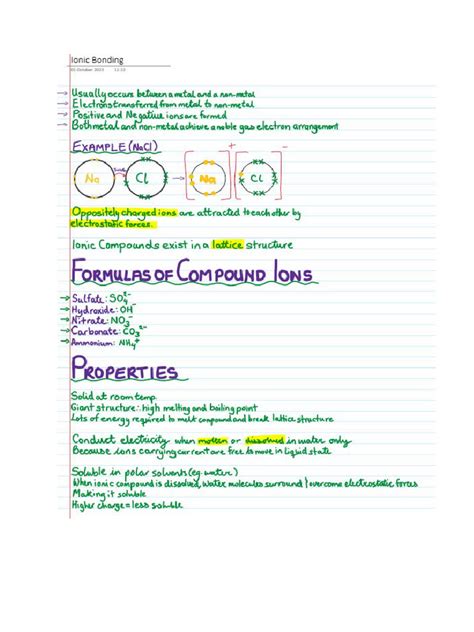 Ionic Bonding
12:29
→ Usually occurs between a metal and a non-metal
→ Electrons transferred from metal to non-metal
→ Positive and Negative ions are formed
→ Both metal and non-metal achieve a noble gas electron arrangement
EXAMPLE (NaCl)
Na Cl → [Na]+ [Cl]-
Oppositely charged ions are attracted to each other by
electrostatic forces.
Ionic Compounds exist in a lattice structure
FORMULAS OF COMPOUND IONS
→ Sulfate: SO₄²⁻
→ Hydroxide: OH⁻
→ Nitrate: NO₃⁻
→ Carbonate: CO₃²⁻
→ Ammonium: NH₄⁺
PROPERTIES
Solid at room temp
Giant structure ∴ high melting and boiling point
Lots of energy required to melt compound and break lattice structure
Conduct electricity when molten or dissolved in water only
Because ions carrying current are free to move in liquid state
Soluble in polar solvents (eg. water)
When ionic compound is dissolved, water molecules surround & overcome electrostatic forces
Making it soluble
Higher charge = less soluble